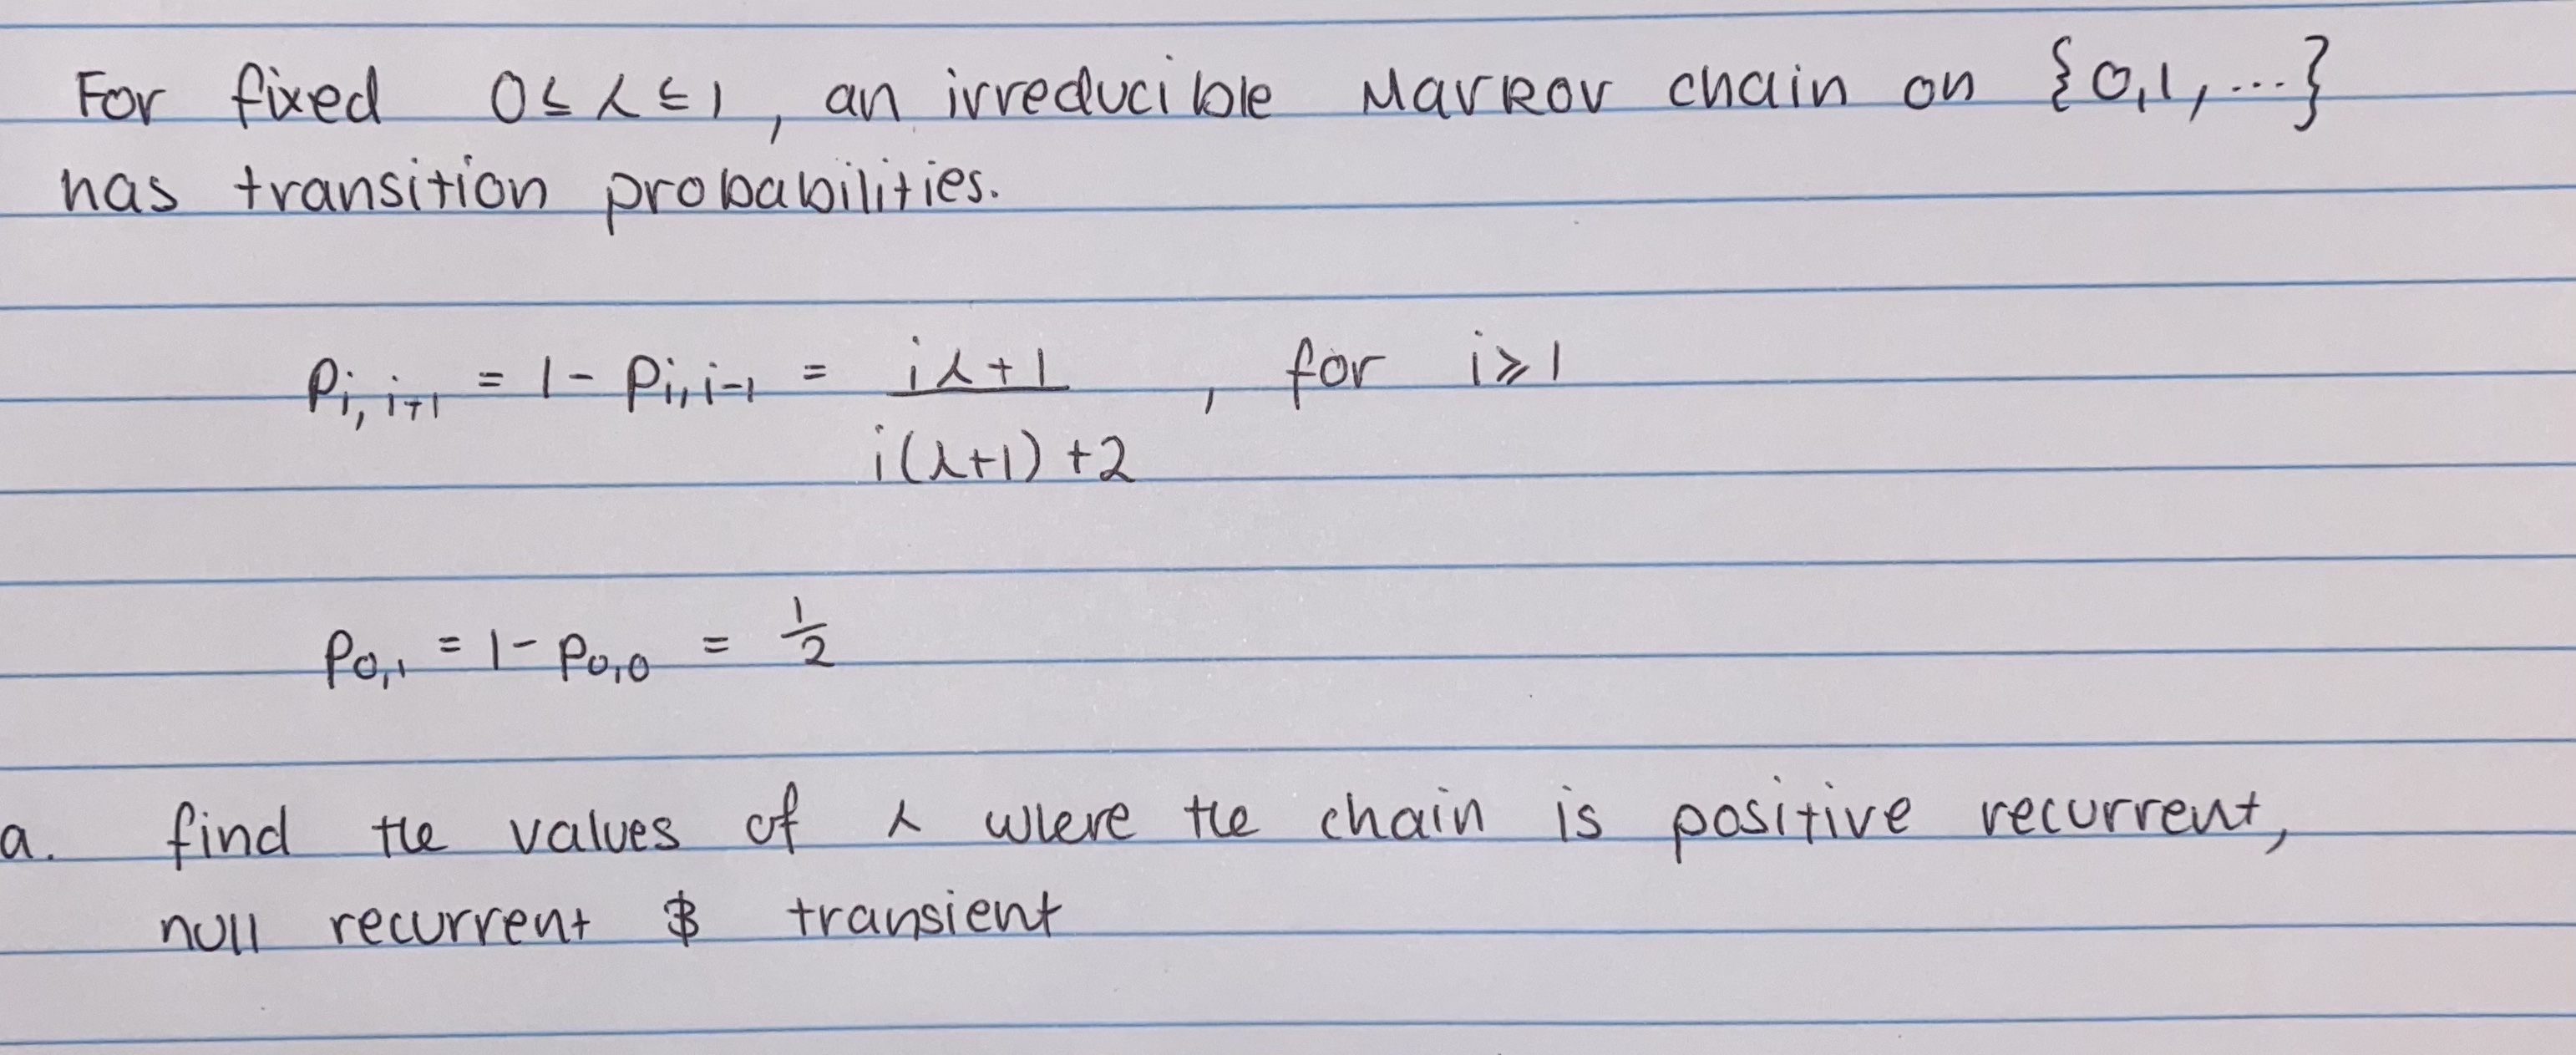 For fixed 0 ≤ λ ≤ 1, an irreducible Markov chain on {0,1,...}
has transition probabilities.
p_{i,i+1} = 1 - p_{i,i-1} = \frac{iλ+1}{i(λ+1)+2}, for i ≥ 1
p_{0,1} = 1 - p_{0,0} = \frac{1}{2}
a. find the values of λ where the chain is positive recurrent,
null recurrent & transient